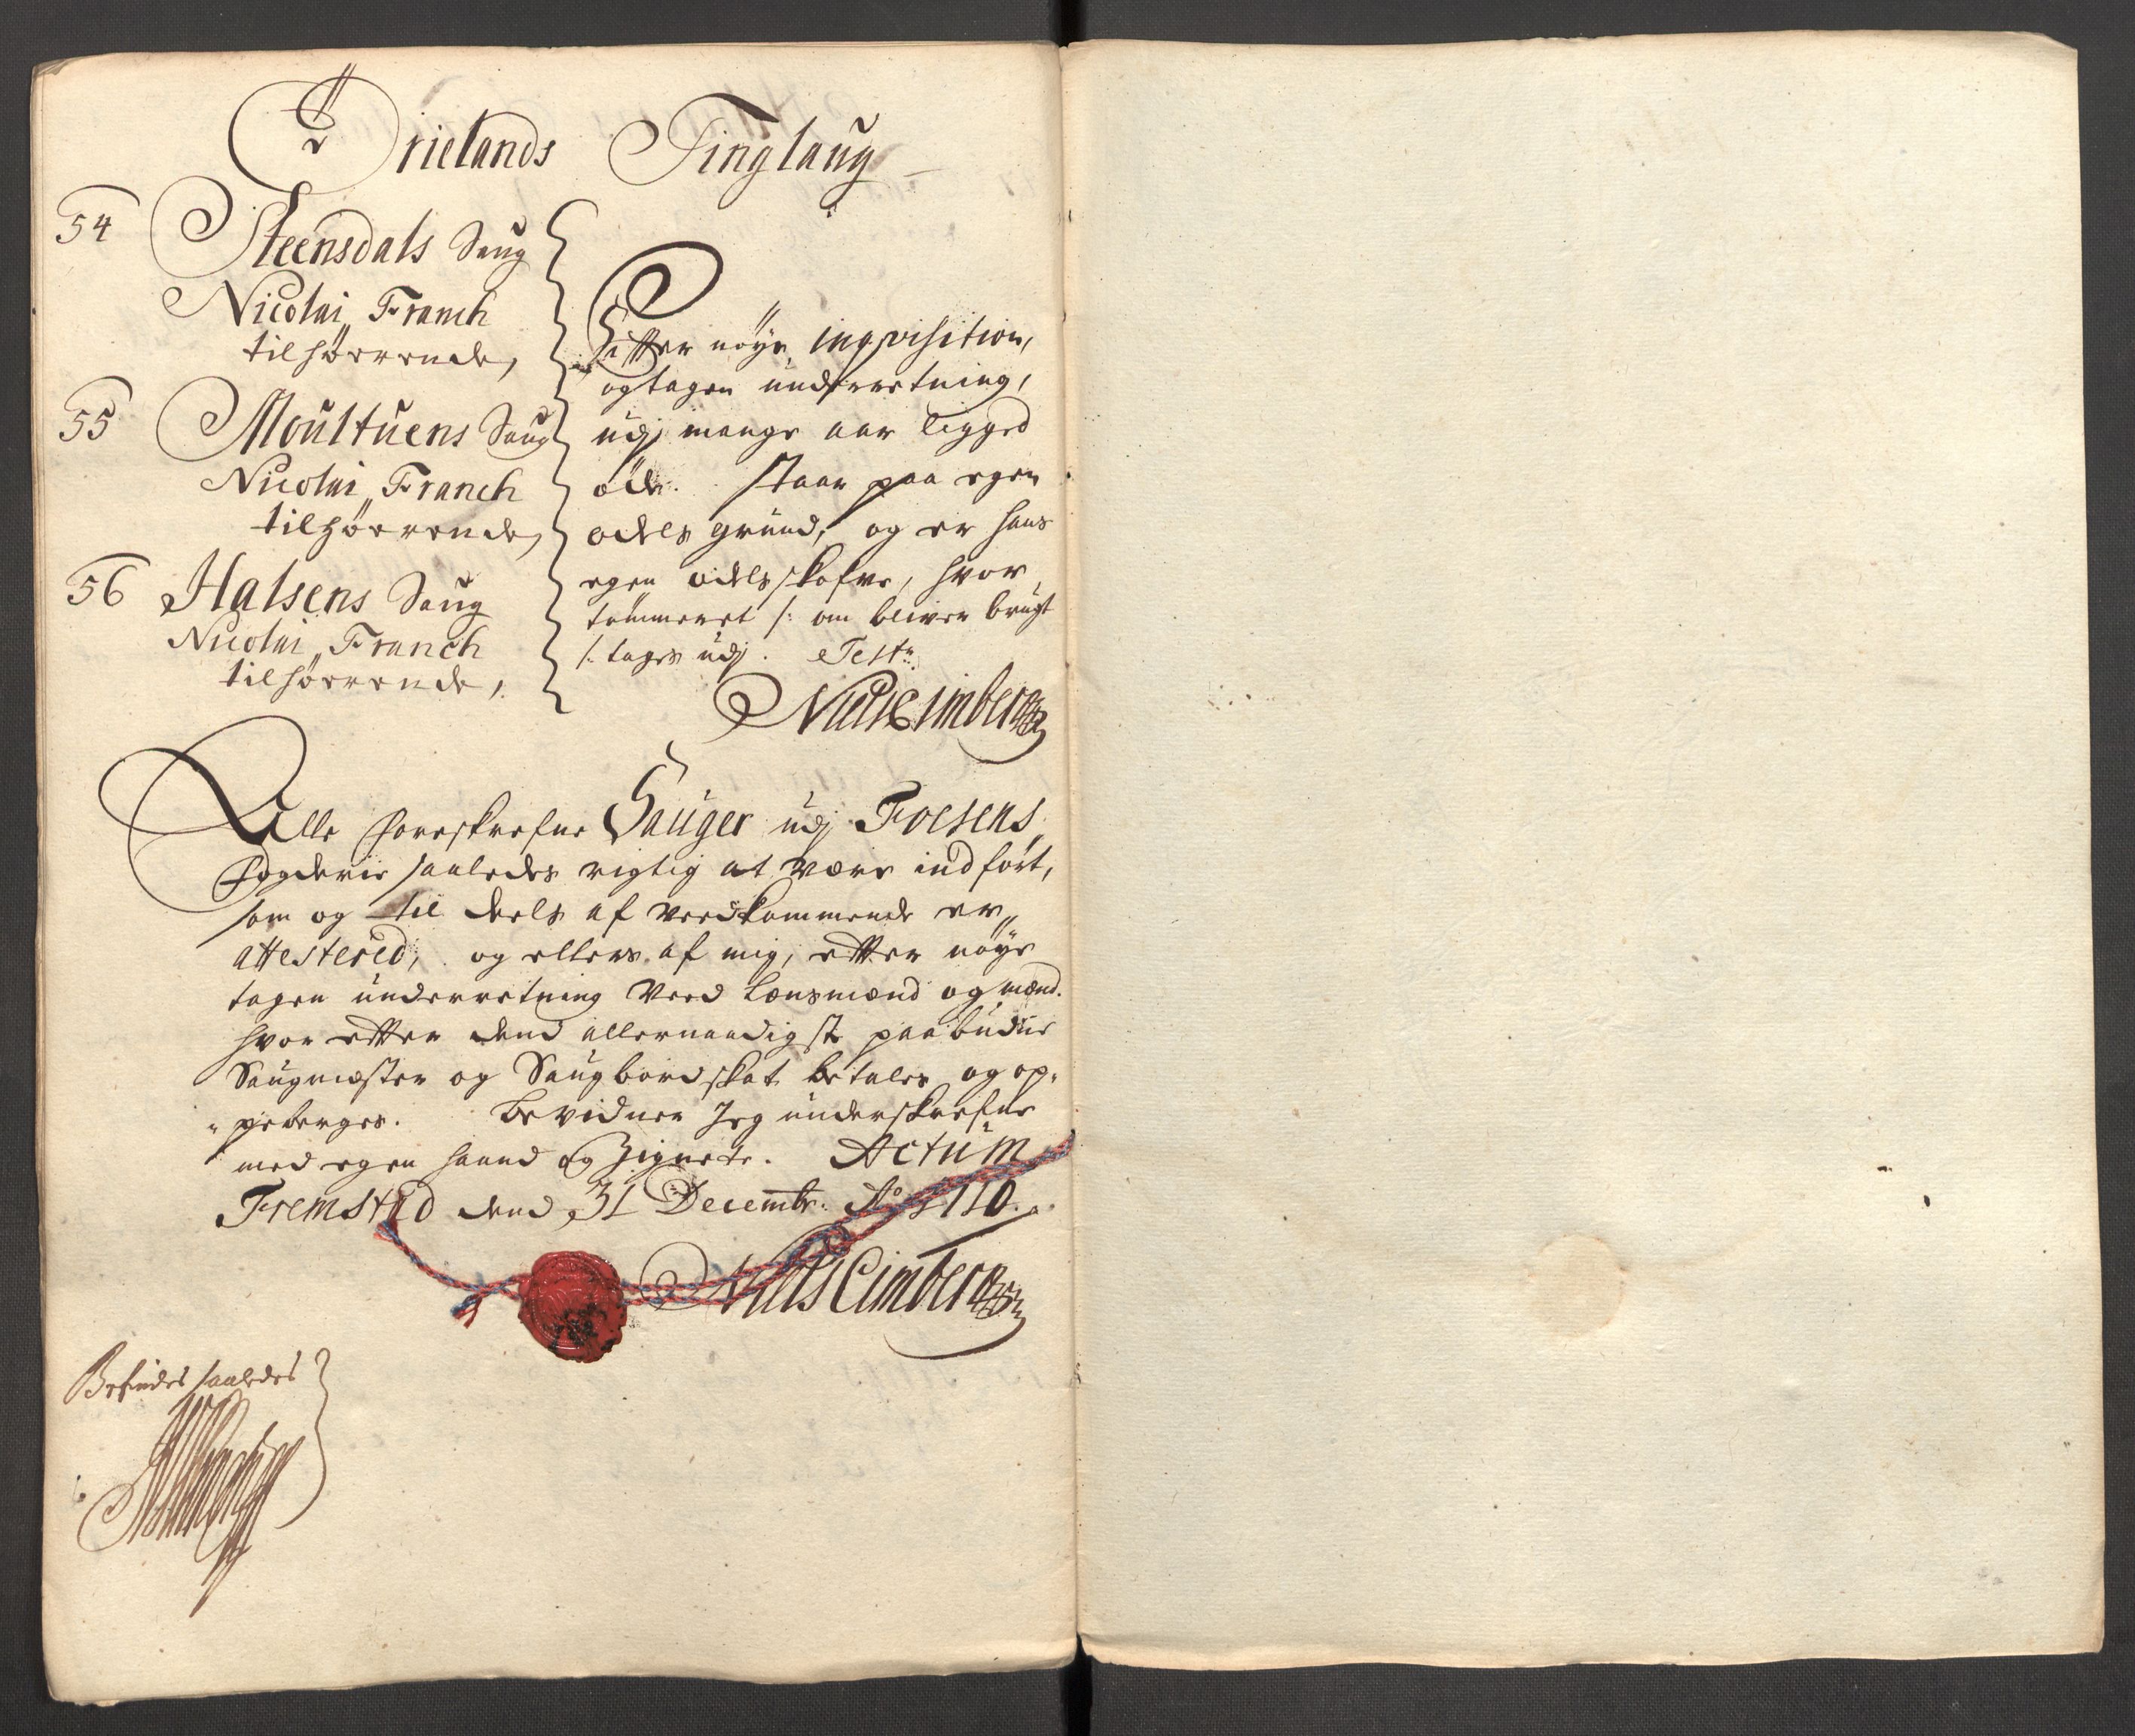 Ørielands Tinglaug
54 Steensdals Saug
Nicolai Franch
tilhørrende,
55 Moultuens Saug
Nicolai Franch
tilhørrende,
56 Halsens Saug
Nicolai Franch
tilhørrende,
Effter nöye inqvisition,
og tagen underretning,
udj mange aar ligged
öde. staar paa egen
odels grund, og er hans
egen odels skofve, hvor
tømmeret /: om bliver brugt
/: tages udj. Test:
Niels Cimber
Alle foreskrefne Sauger udj Foesens
fogderie saaledes rigtig at være indfört,
som og til deels af vedkommende er
attestered, og ellers af mig, effter nöye
tagen underretning ved Lensmænd og mænd.
hvor effter dend allernaadigste paabudne
Saugmester og Saugbord skat betales og op-
peberges. Bevidner Jeg underskrefne
med egen haand og Zignete. Actum
Fremstad dend 31 Decembr: Ao 1710.
Niels Cimber
Befindes saaledes